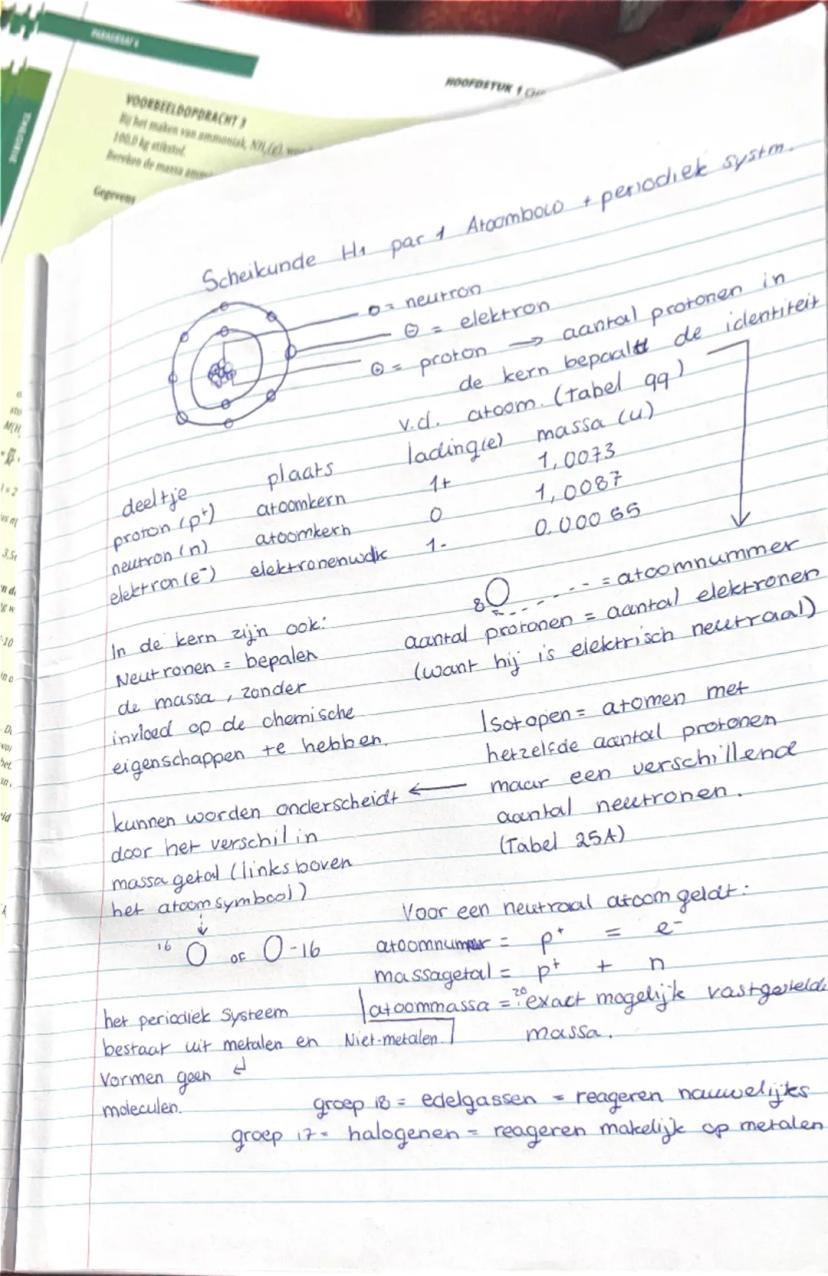 PARAGRAAF 4
HOOFDSTUK 1
THEORIE
VOORBEELDOPDRACHT 3
Bij het maken van ammoniak, NH3(g),
100,0 kg stikstof.
Bereken de massa
Gegevens
Scheikunde H1 par 1 Atoombouw + periodiek systm.
o = neutron
⊖ = elektron
⊕ = proton → aantal protonen in
de kern bepaalt de identiteit
v.d. atoom. (Tabel 99)
deeltje plaats lading(e) massa (u)
proton (p⁺) atoomkern 1+ 1,0073
neutron (n) atoomkern 0 1,0087
elektron (e⁻) elektronenwolk 1- 0,00055
₈O ------- = atoomnummer
aantal protonen = aantal elektronen
(want hij is elektrisch neutraal)
In de kern zijn ook:
Neutronen = bepalen
de massa, zonder
invloed op de chemische
eigenschappen te hebben.
Isotopen = atomen met
hetzelfde aantal protonen
maar een verschillende
aantal neutronen.
(Tabel 25A)
kunnen worden onderscheidt ←
door het verschil in
massagetal (linksboven
het atoomsymbool)
¹⁶O of O-16
Voor een neutraal atoom geldt:
atoomnummer = p⁺ = e⁻
massagetal = p⁺ + n
atoommassa = zo exact mogelijk vastgestelde
massa.
het periodiek systeem
bestaat uit metalen en Niet-metalen
Vormen geen
moleculen.
groep 18 = edelgassen = reageren nauwelijks
groep 17 = halogenen = reageren makelijk op metalen